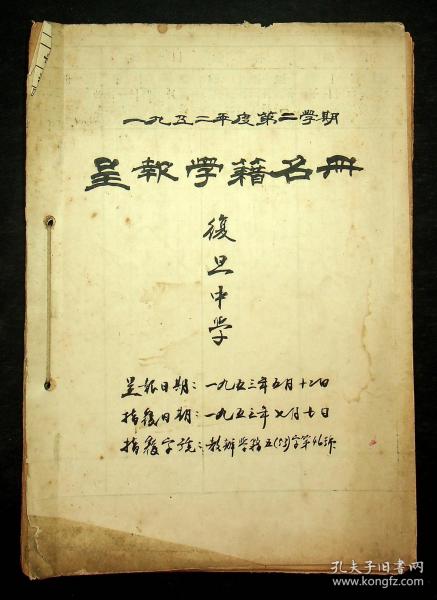 一九五二年度第二學期
呈報学籍名冊
復旦中学
呈报日期：一九五三年五月十二日
指復日期：一九五三年七月七日
指覆字號：教辦学籍五(53)字第
孔夫子旧书网
www.kongfz.com